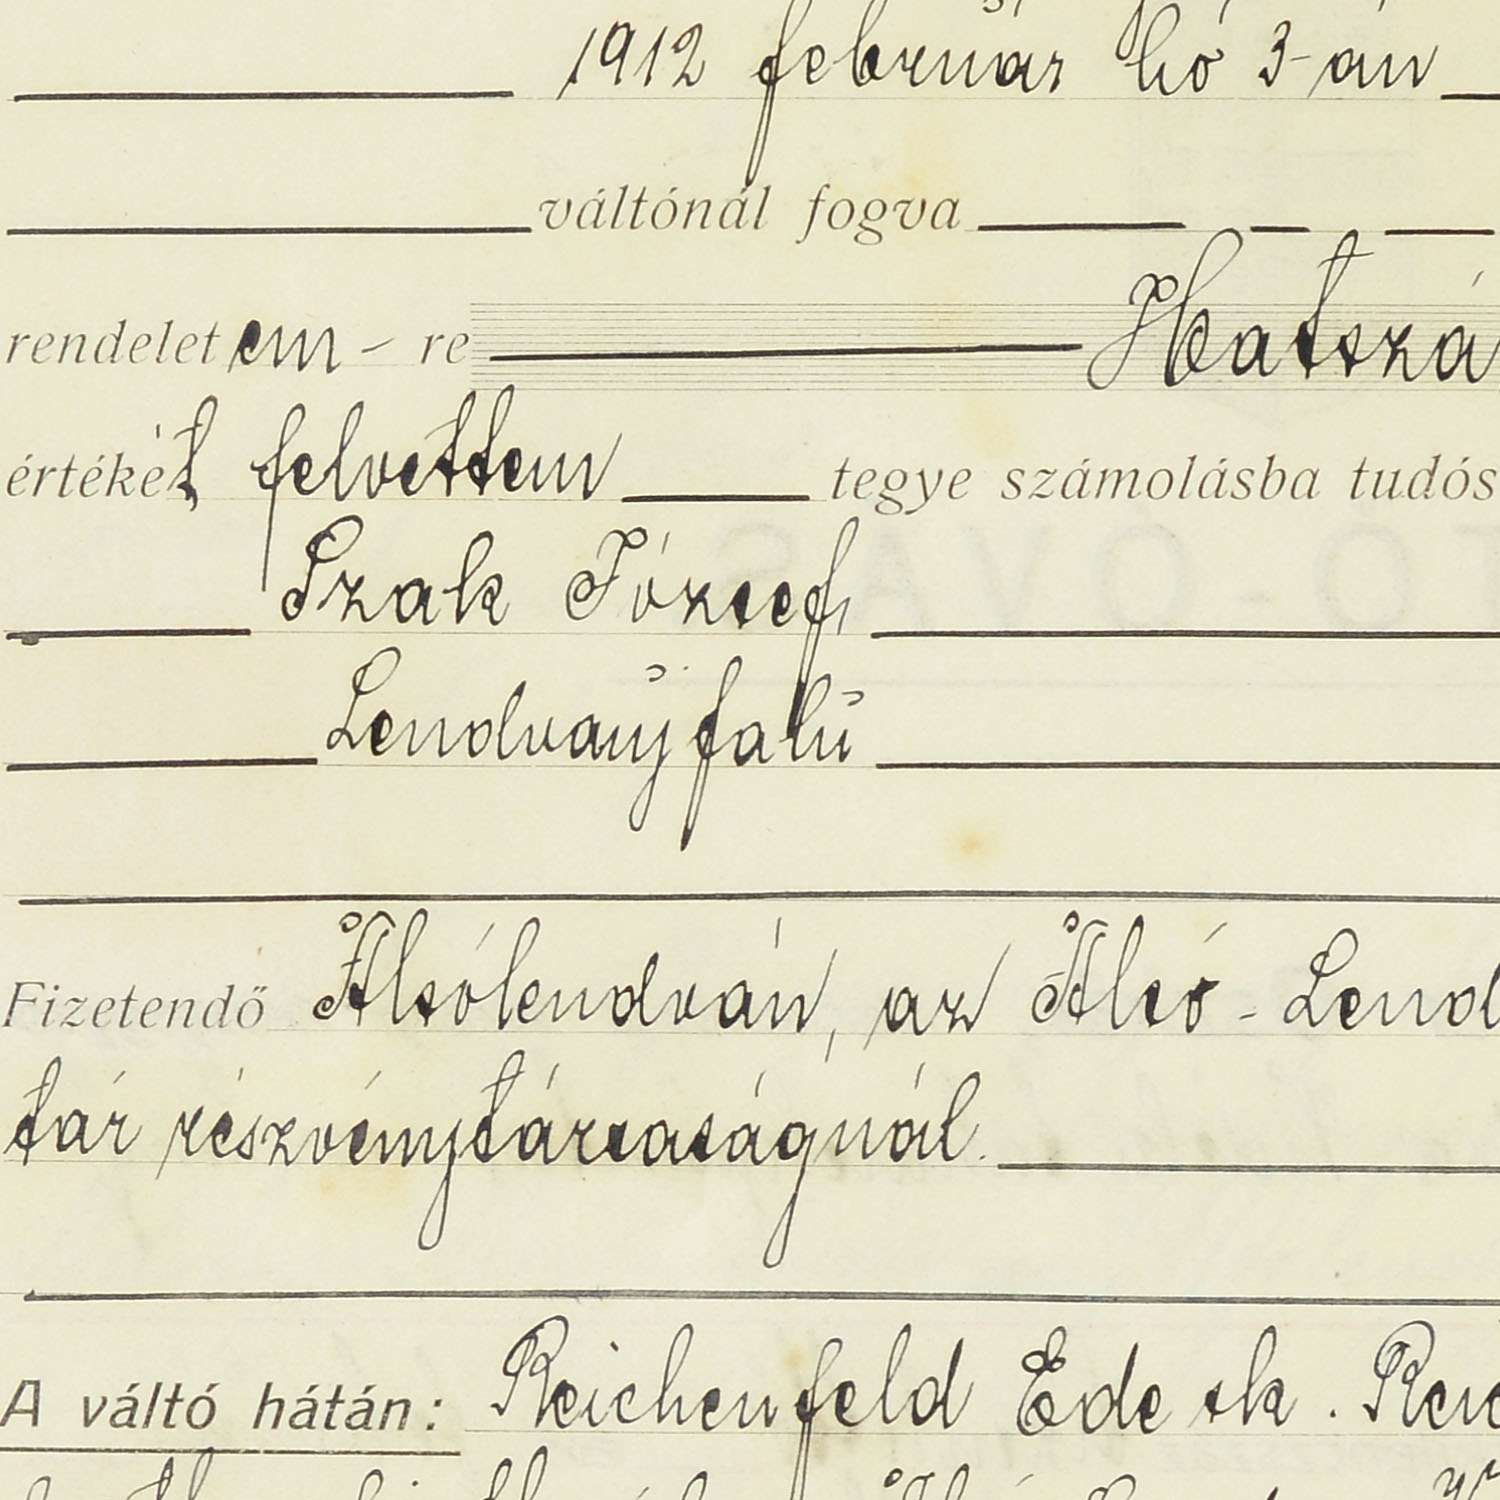 1912 február hó 3-án
váltónál fogva
rendeletem - re Hatszá
értékét felvettem tegye számolásba tudós
Szak József,
Lendvaujfalu
Fizetendő Alsólendván, az Alsó-Lend
tár részvénytársaságnál.
A váltó hátán: Reichenfeld Ede sk. Reic